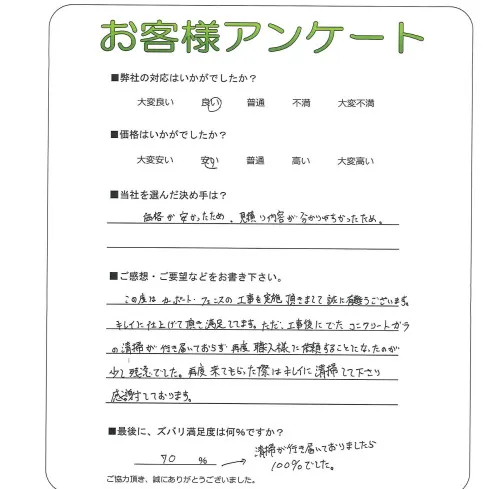 お客様アンケート
■弊社の対応はいかがでしたか？
大変良い 良い 普通 不満 大変不満
■価格はいかがでしたか？
大変安い 安い 普通 高い 大変高い
■当社を選んだ決め手は？
価格が安かったため、見積り内容が分かりやすかったため。
■ご感想・ご要望などをお書き下さい。
この度はカーポート・フェンスの工事を実施頂きまして誠に有難うございます。
キレイに仕上げて頂き満足してます。ただ、工事後にでたコンクリートガラ
の清掃が行き届いておらず再度職人様に依頼することになったのが
少し残念でした。再度来てもらった際はキレイに清掃して下さり
感謝しております。
■最後に、ズバリ満足度は何％ですか？
70 ％ → 清掃が行き届いておりましたら
100％でした。
ご協力頂き、誠にありがとうございました。